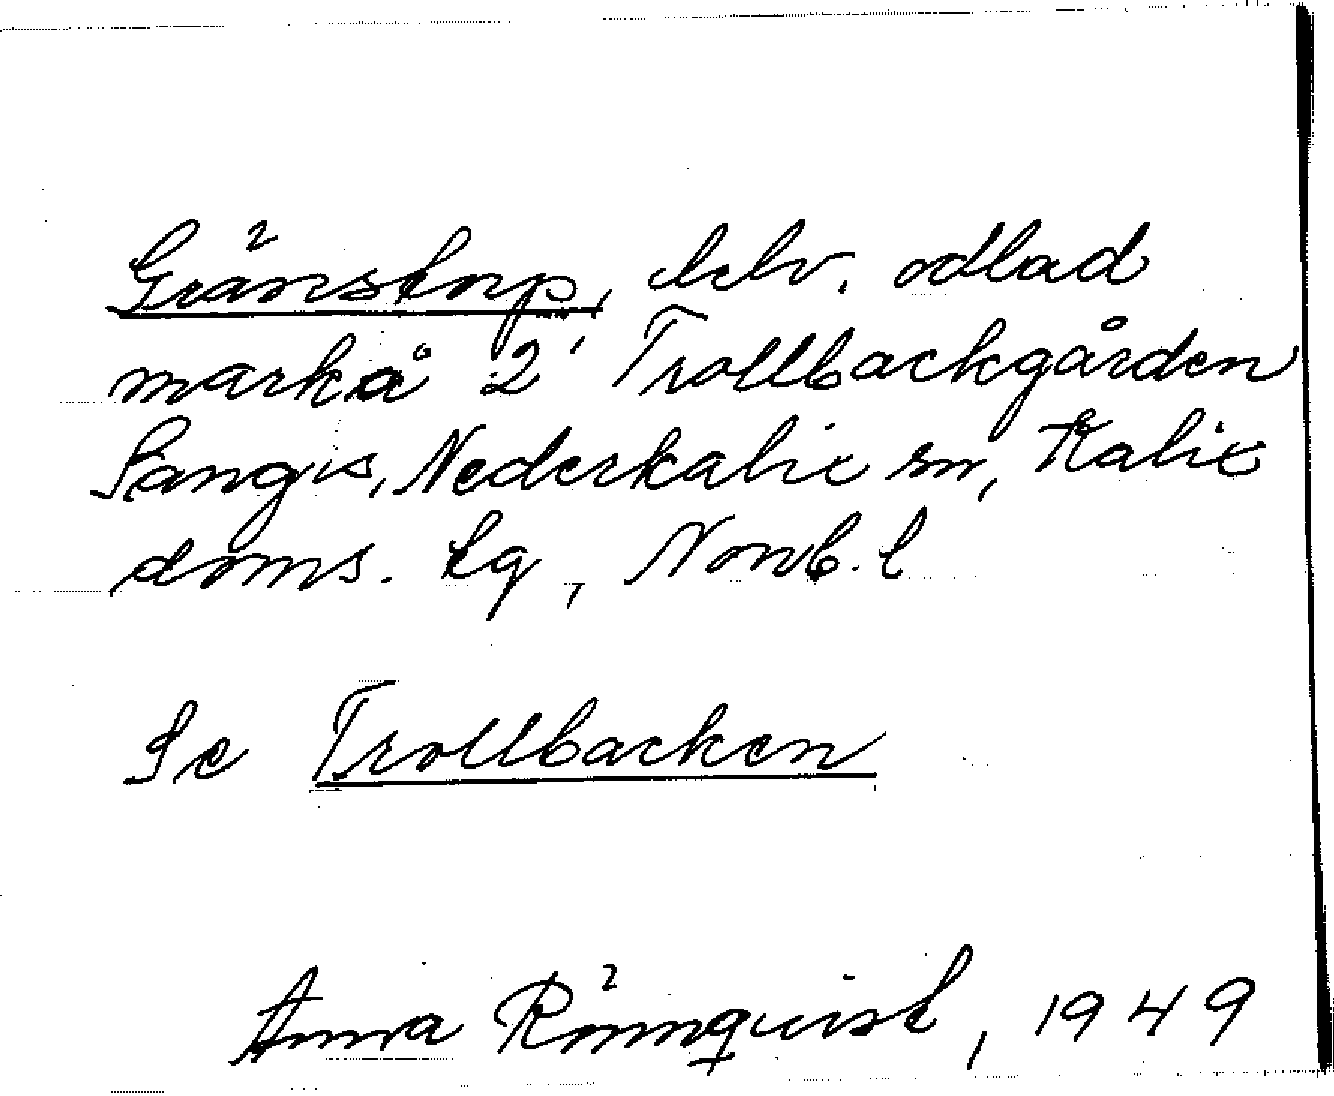 Gränstorp, delv. odlad
mark å 2, Trollbackgården
Sangis, Nederkalix sn, Kalix
doms. tg, Norrb. l
Se Trollbacken
Anna Rönnqvist, 1949